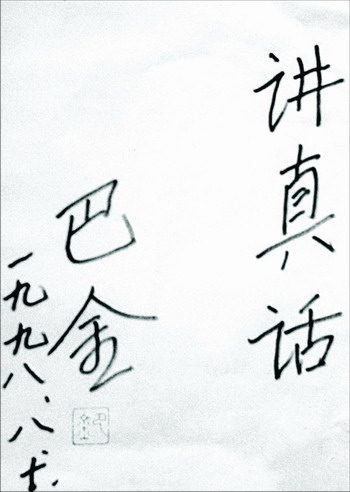 讲真话
巴金
一九九八、八